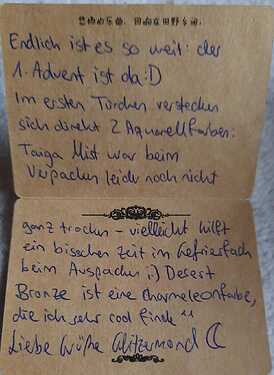 Endlich ist es so weit: der
1. Advent ist da :D
Im ersten Türchen verstecken
sich direkt 2 Aquarellfarben:
Taiga Mist war beim
Verpacken leider noch nicht
ganz trocken – vielleicht hilft
ein bisschen Zeit im Gefrierfach
beim Auspacken ;) Desert
Bronze ist eine Chamäleonfarbe,
die ich sehr cool finde ^^
Liebe Grüße Glitzermond